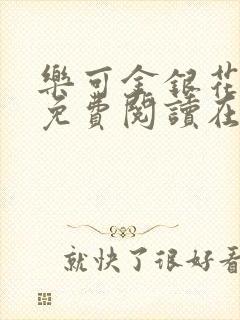 樂可金銀花
免費閱讀在
就快了很好看